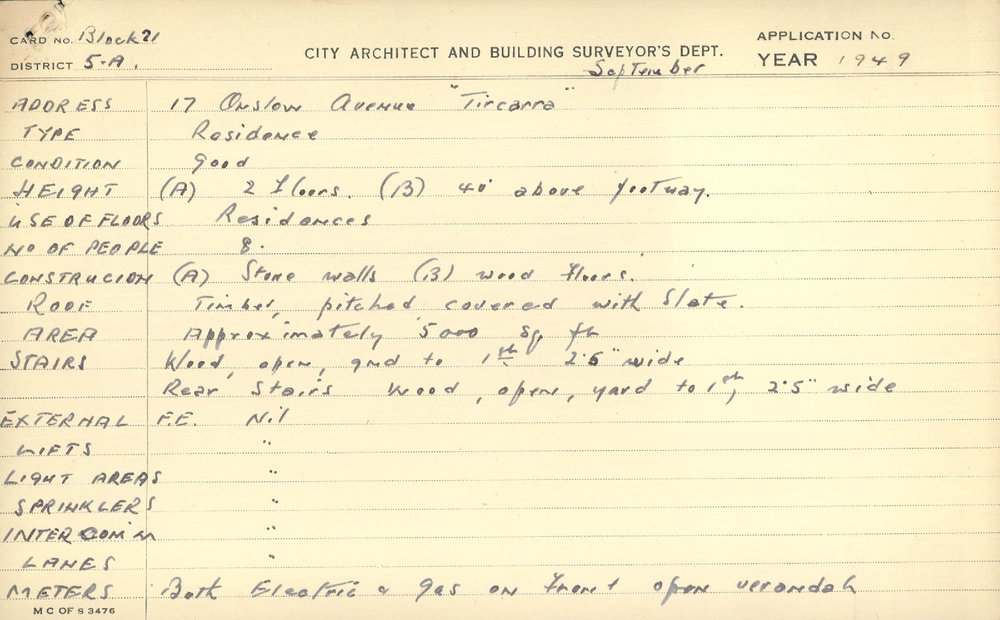 CARD No. Block 21
DISTRICT 5-A.
CITY ARCHITECT AND BUILDING SURVEYOR'S DEPT.
APPLICATION No.
September
YEAR 1949
ADDRESS 17 Onslow Avenue "Tircarra"
TYPE Residence
CONDITION Good
HEIGHT (A) 2 Floors. (B) 40' above footway.
USE OF FLOORS Residences
NO OF PEOPLE 8.
CONSTRUCION (A) Stone walls (B) wood floors.
ROOF Timber, pitched covered with Slate.
AREA Approximately 5000 sq. ft
STAIRS Wood, open, gnd to 1st 2'6" wide
Rear Stairs Wood, open, yard to 1st, 2'5" wide
EXTERNAL F.E. Nil
LIFTS "
LIGHT AREAS "
SPRINKLERS "
INTER COM'N "
LANES "
METERS Both Electric & Gas on front open verandah
M C OF S 3476